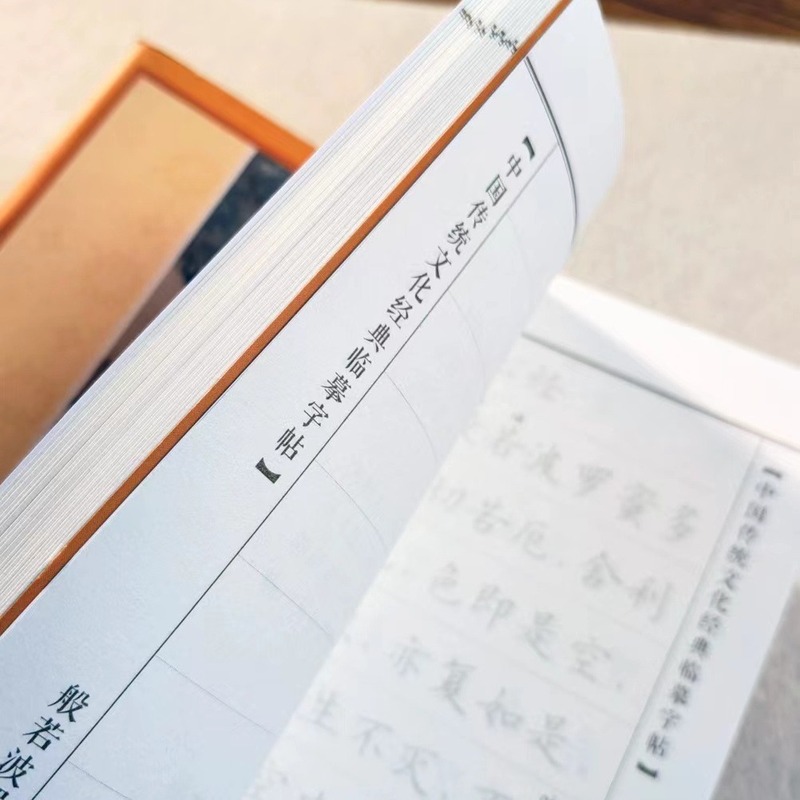 【中国传统文化经典临摹字帖】
般若波
若波罗蜜多
切苦厄，舍利
色即是空，
亦复如是。
生不灭，
【中国传统文化经典临摹字帖】